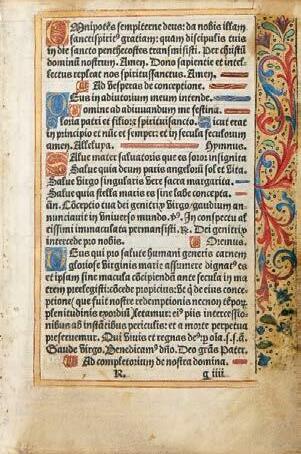 OMnipotẽs sempiterne deus: da nobis illam
sanctispiritꝰ gratiam: quam discipulis tuis
in die sancto penthecostes transmisisti. Per christũ
dominũ nostrum. Amen. Dono sapientie et intel-
lectus repleat nos spiritussanctus. Amen.
Ad vesperas de conceptione.
DEus in adiutorium meum intende.
Domine ad adiuuandum me festina.
Gloria patri et filio: et spirituisancto. Sicut erat
in principio et nũc et semper: et in secula seculorum
amen. Alleluya. Hymnus.
SAlue mater saluatoris que es soror insignita
Salue quia deum paris angelis sol et vita.
Salue virgo singularis vera sacra margarita.
Salue quia stella maris es sine labe concepta.
añ. Cõceptio tua dei genitrix virgo: gaudium an-
nunciauit in vniuerso mundo. ℣. In conspectu al-
tissimi immaculata permansisti. ℟. Dei genitrix
intercede pro nobis. Oremus.
DEus qui pro salute humani generis carnem
gloriose virginis marie assumere dignatꝰ es
et ipsam sine macula cõcipiendã ante secula in ma-
trem preelegisti: cõcede propicius: vt q̃ de eius conce-
ptione: que fuit nostre redemptionis necnon tẽpoꝝ
plenitudinis exordiũ letamur: eiꝰ piis intercessio-
nibus ab instãtibus periculis: et a morte perpetua
preseruemur. Qui viuis et regnas deꝰ p̃ oĩa. s. s. a.
Gaude virgo. Benedicamꝰ dño. Deo grãs Pater.
Ad completorium de nostra domina.
R. g iiii